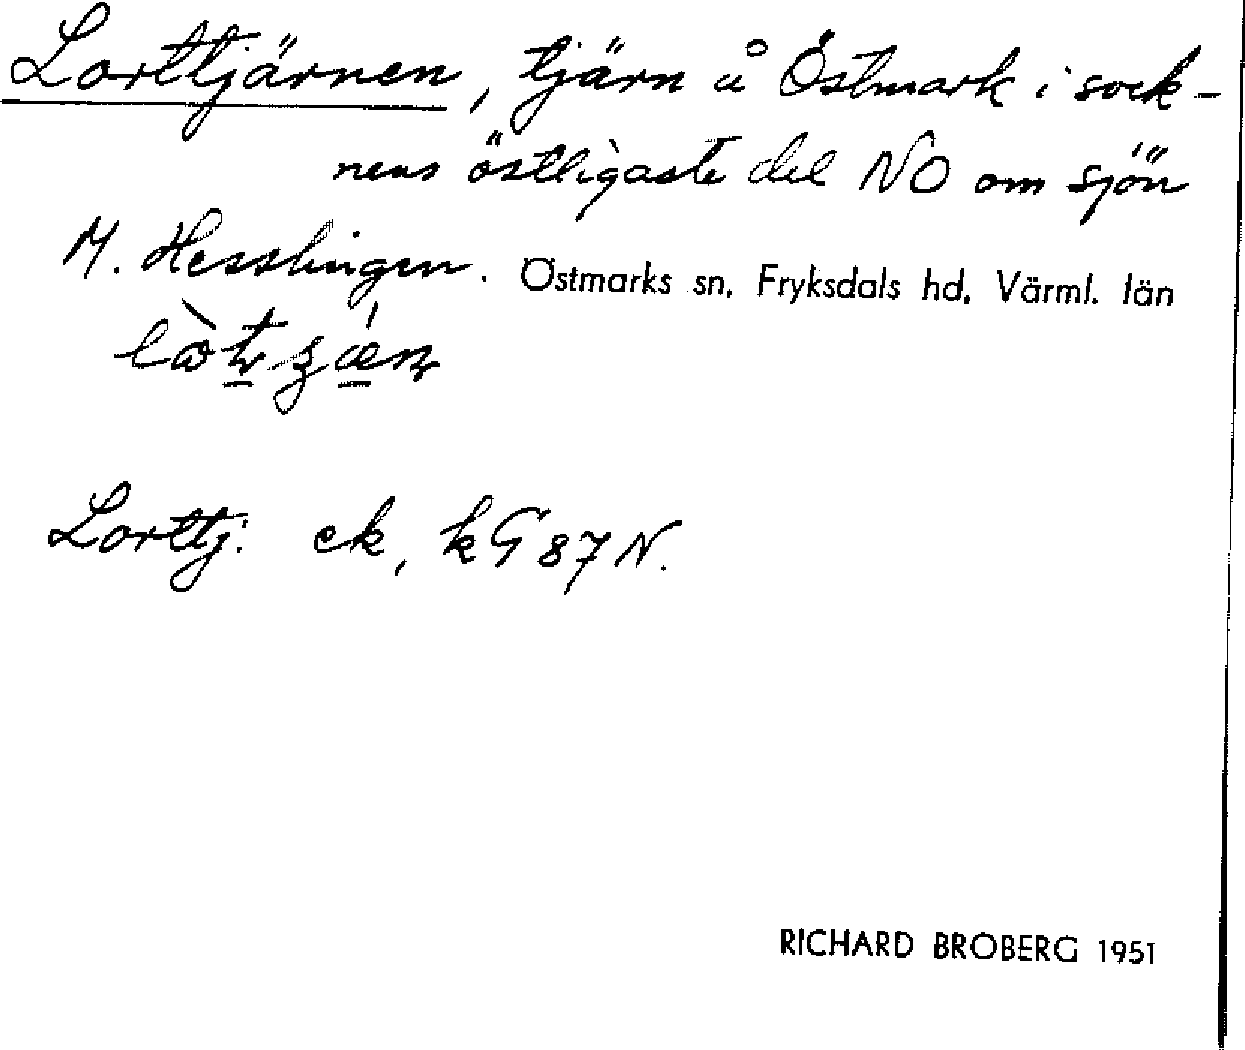 Lorttjärnen, tjärn å Östmark i sock-
nens östligaste del NO om sjön
M. Hesslingen. Östmarks sn, Fryksdals hd, Värml. län
Lorttj: ek, kG87N.
RICHARD BROBERG 1951